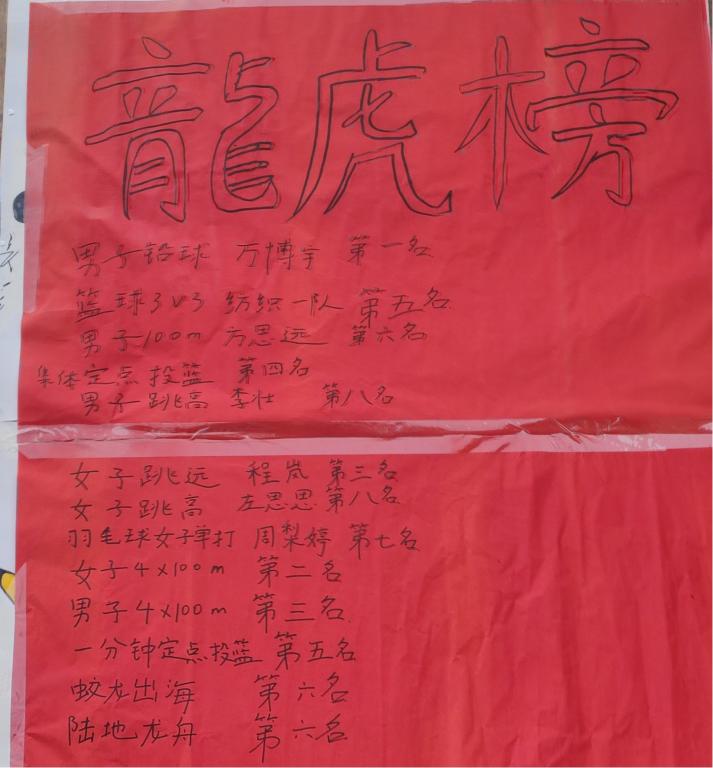 龍虎榜
男子铅球 万博宇 第一名
篮球3V3 纺织一队 第五名
男子100m 方思远 第六名
集体定点投篮 第四名
男子跳高 李壮 第八名
女子跳远 程岚 第三名
女子跳高 左思思 第八名
羽毛球女子单打 周梨婷 第七名
女子4×100m 第二名
男子4×100m 第三名
一分钟定点投篮 第五名
蛟龙出海 第六名
陆地龙舟 第六名